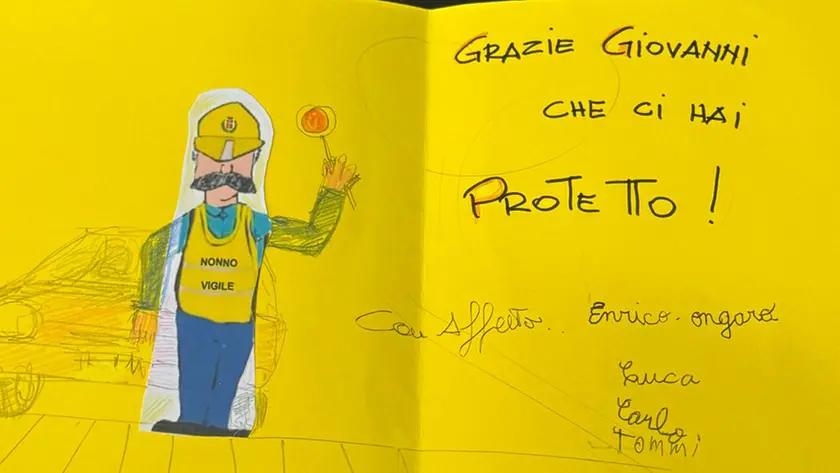 NONNO
VIGILE
GRAZIE GIOVANNI
CHE CI HAI
PROTETTO!
Con Affetto.. Enrico ongaro
Luca
Carlo
Tommi